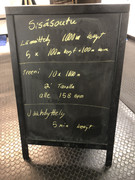 Sisäsoutu
Lämmittely 1000m kevyt
5 x 100m kevyt + 100m
Treeni 10 x 100m
2' Tauolla
alle 15
Jäähdyttely
5 min kevyt